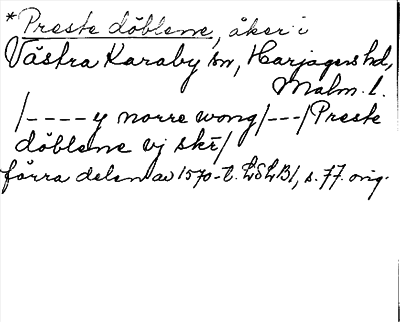 *Preste döblene, åker i
Västra Karaby sn, Harjagers hd,
Malm. l.
/----y norre wong/---/Preste
döblene vj skr/
förra delen av 1570-t. LSLB1, s. 77. orig.